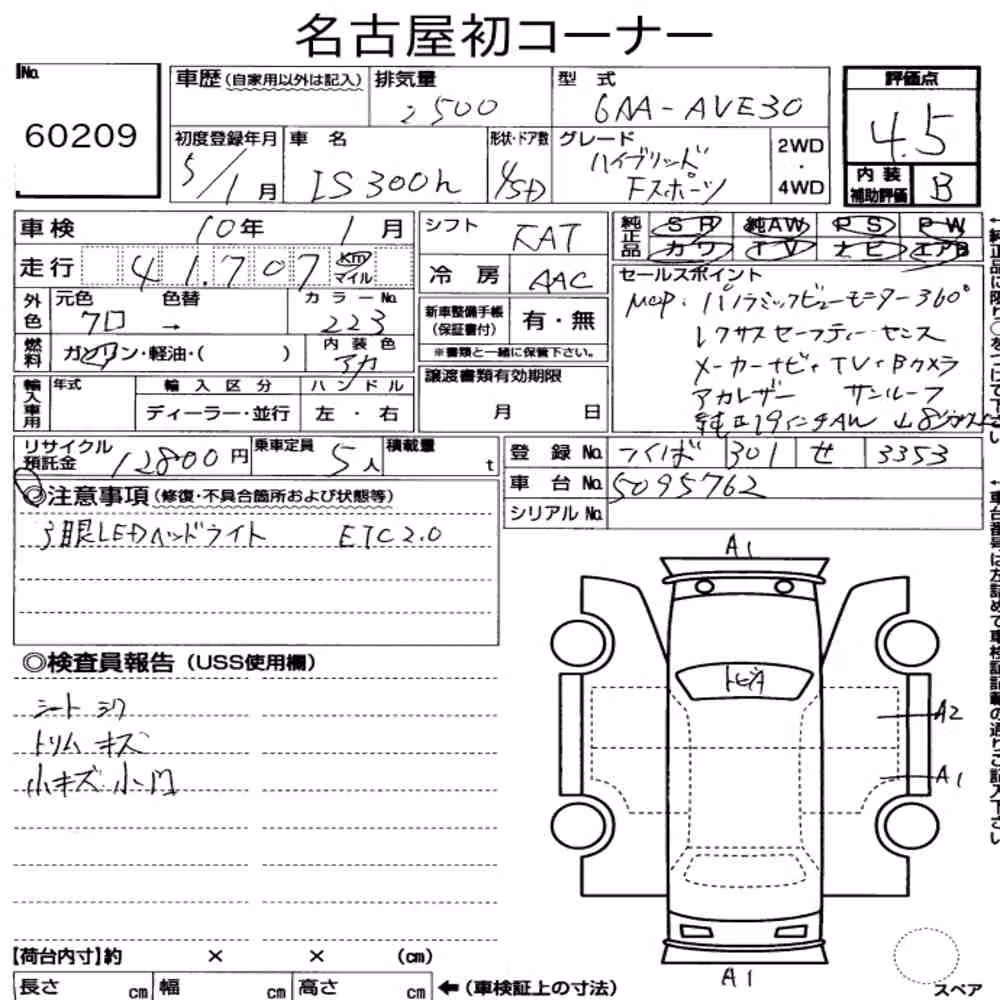 名古屋初コーナー
No. 60209
車歴(自家用以外は記入) 排気量 2500 型式 6AA-AVE30
評価点 4.5
内装補助評価 B
初度登録年月 5/1月 車名 IS300h 形状・ドア数 4/SD グレード ハイブリッド Fスポーツ 2WD・4WD
車検 10年 1月 シフト FAT
純正品 SR 純AW PS PW
カワ TV ナビ エアB
走行 41,707 km マイル 冷房 AAC
セールスポイント
mop. パノラミックビューモニター360°
レクサスセーフティーセンス
メーカーナビ・TV・Bカメラ
アカレザー サンルーフ
純正19インチAW
外色 元色 クロ 色替 → カラーNo. 223
新車整備手帳(保証書付) 有・無
※書類と一緒に保管下さい。
燃料 ガソリン・軽油・( ) 内装色 アカ
譲渡書類有効期限 月 日
輸入車用 年式 輸入区分 ハンドル
ディーラー・並行 左・右
リサイクル預託金 12800円 乗車定員 5人 積載量 t
登録No. つくば 301 せ 3353
車台No. 5095762
シリアルNo.
◎注意事項(修復・不具合箇所および状態等)
3眼LEDヘッドライト ETC2.0
←純正品に限り○をつけて下さい
←車台番号は左詰めで車検証記載の通りご記入下さい
◎検査員報告(USS使用欄)
シート シワ
トリム キズ
小キズ 小凹
A1
トビA
A2
A1
A1
【荷台内寸】約 × × (cm)
長さ cm 幅 cm 高さ cm ←(車検証上の寸法)
スペア